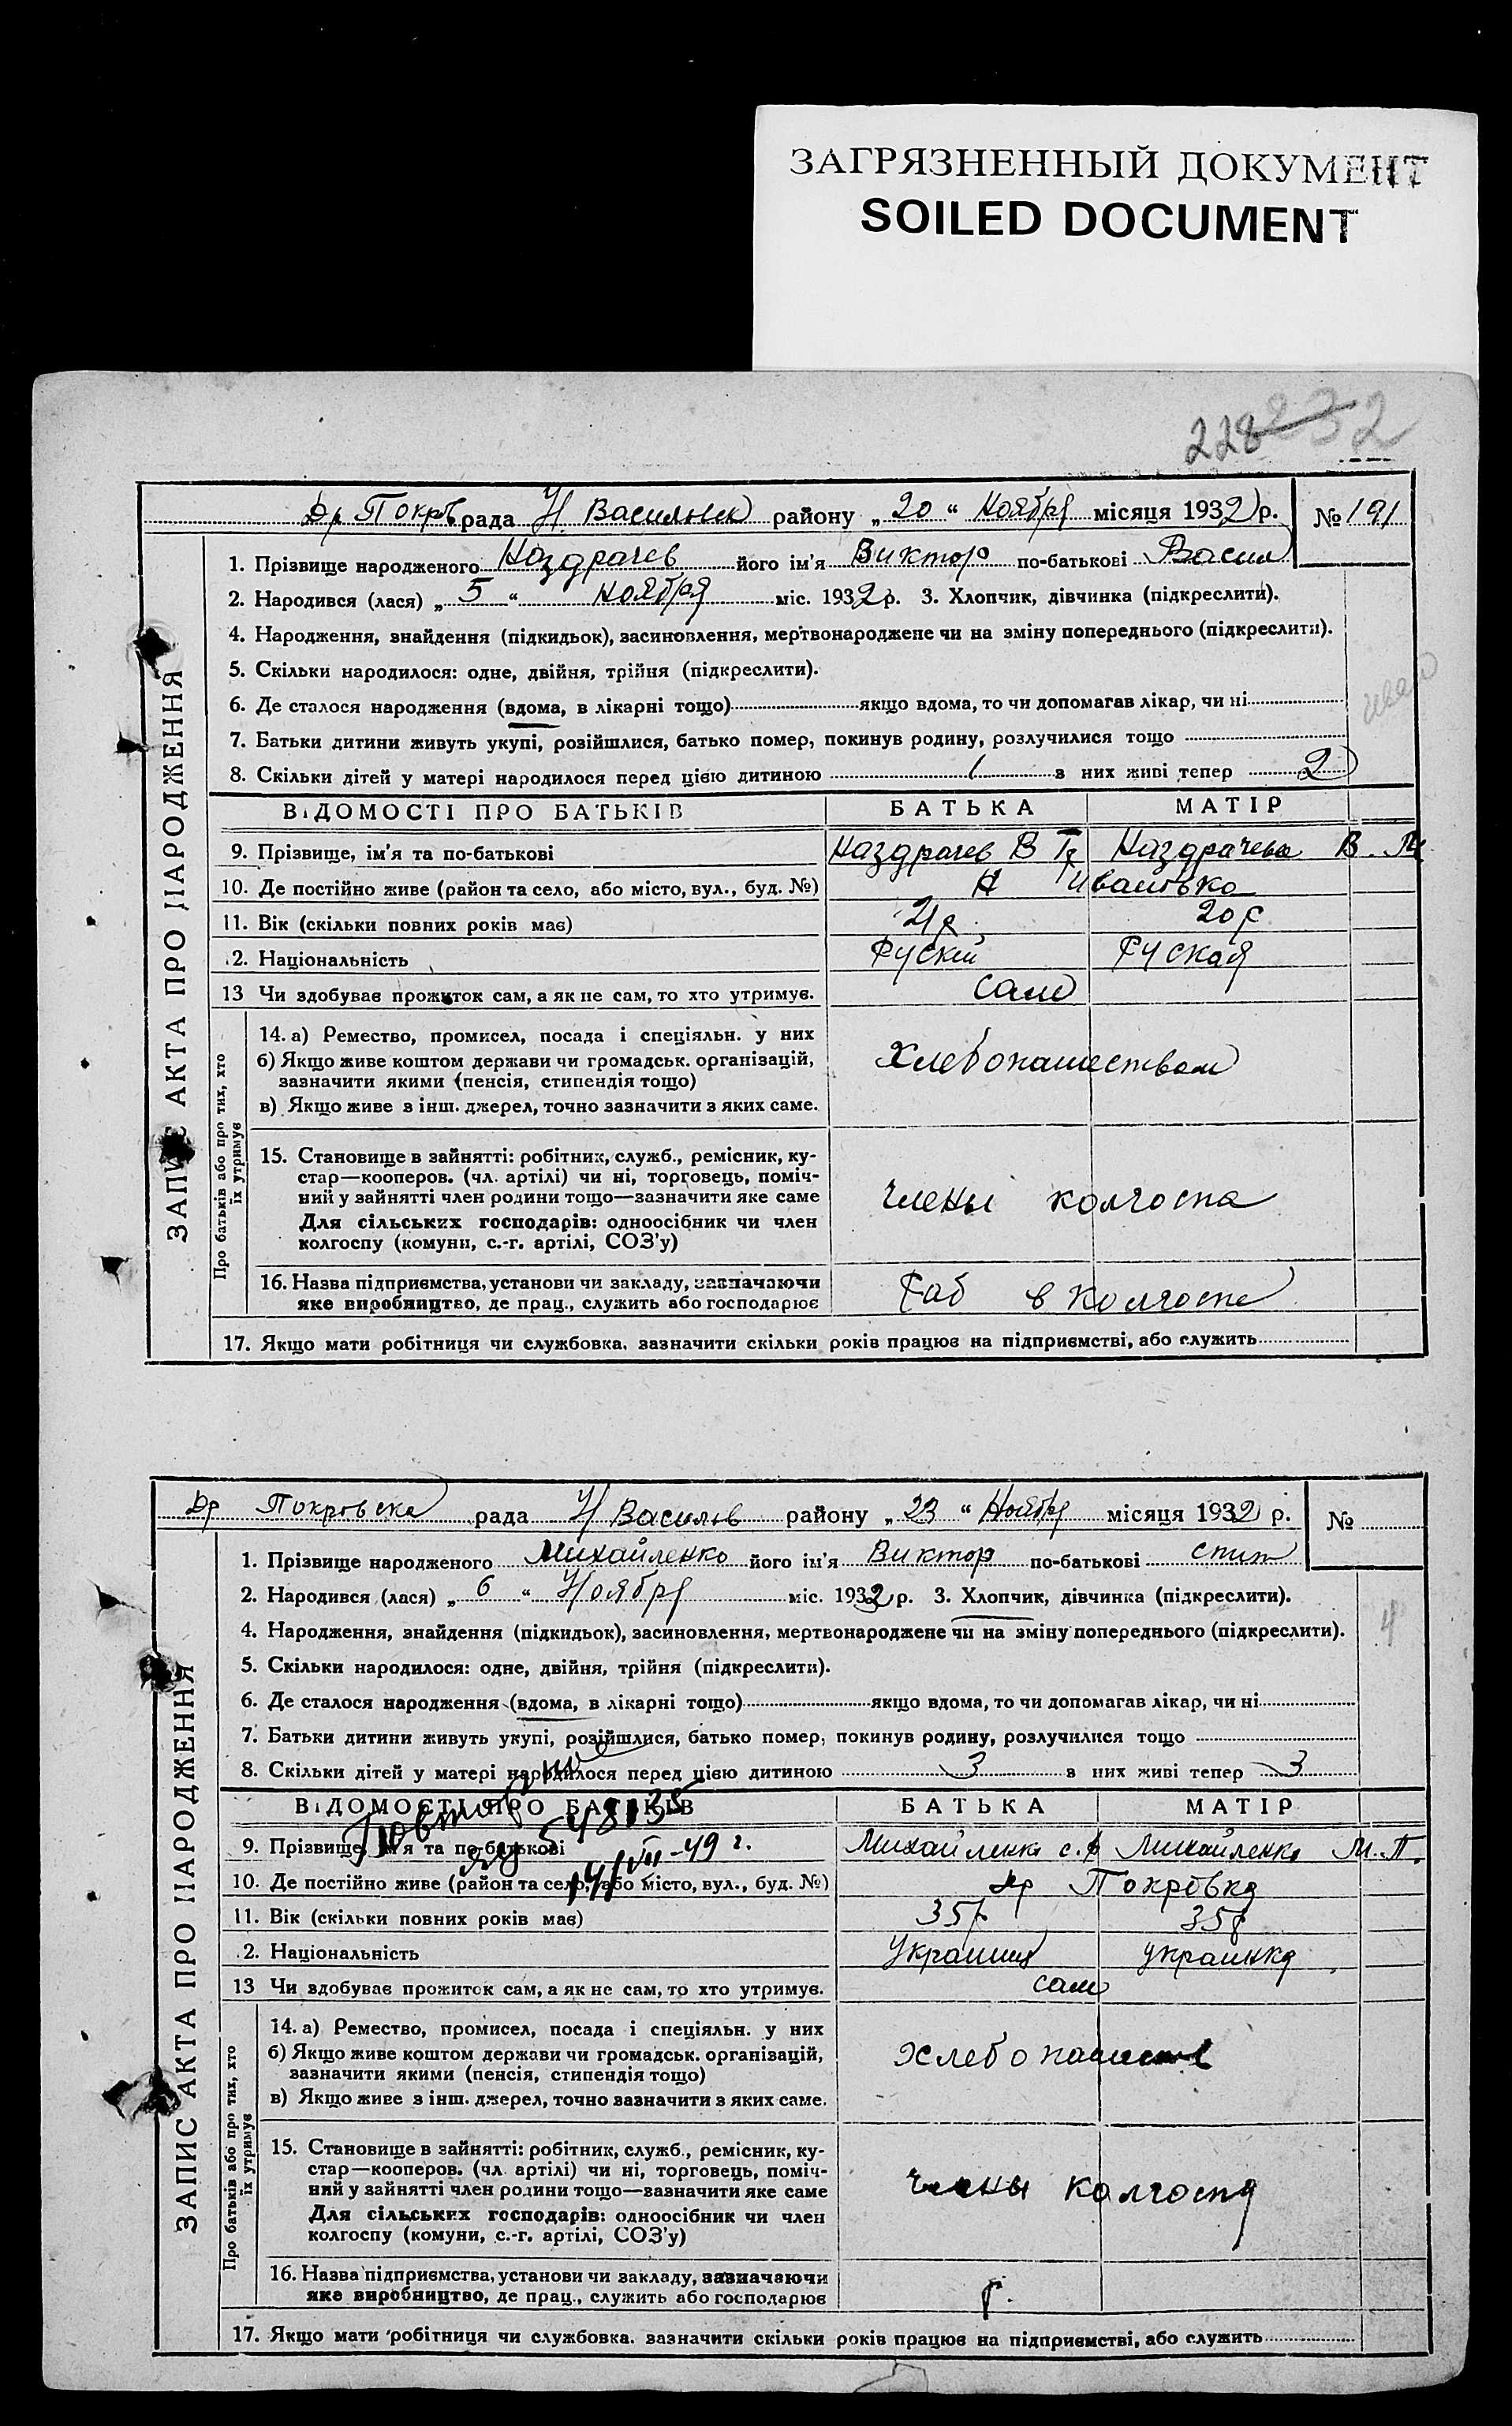 ЗАГРЯЗНЕННЫЙ ДОКУМЕНТ
SOILED DOCUMENT
228 232
Др Покрв рада Н Васильек району „ 20 “ Ноября місяця 1932 р. № 191
ЗАПИС АКТА ПРО НАРОДЖЕННЯ
1. Прізвище народженого Наздрачев його ім'я Виктор по-батькові Васил
2. Народився (лася) „ 5 “ Ноября міс. 1932 р. 3. Хлопчик, дівчинка (підкреслити).
4. Народження, знайдення (підкидьок), засиновлення, мертвонароджене чи на зміну попереднього (підкреслити).
5. Скільки народилося: одне, двійня, трійня (підкреслити).
6. Де сталося народження (вдома, в лікарні тощо) якщо вдома, то чи допомагав лікар, чи ні
7. Батьки дитини живуть укупі, розійшлися, батько помер, покинув родину, розлучилися тощо
8. Скільки дітей у матері народилося перед цією дитиною 1 з них живі тепер 2
ВІДОМОСТІ ПРО БАТЬКІВ БАТЬКА МАТІР
9. Прізвище, ім'я та по-батькові Наздрачев В Наздрачева В.
10. Де постійно живе (район та село, або місто, вул., буд. №) Н Ивановка
11. Вік (скільки повних років має) 21 р 20 р
.2. Національність Руский Руская
13 Чи здобуває прожиток сам, а як не сам, то хто утримує. сами
Про батьків або про тих, хто їх утримує
14. а) Ремество, промисел, посада і спеціяльн. у них
б) Якщо живе коштом держави чи громадськ. організацій,
зазначити якими (пенсія, стипендія тощо)
в) Якщо живе з інш. джерел, точно зазначити з яких саме.
Хлебопашеством
15. Становище в зайнятті: робітник, служб., ремісник, ку-
стар—кооперов. (чл. артілі) чи ні, торговець, поміч-
ний у зайнятті член родини тощо—зазначити яке саме
Для сільських господарів: одноосібник чи член
колгоспу (комуни, с.-г. артілі, СОЗ'у)
члены колгоспа
16. Назва підприємства, установи чи закладу, зазначаючи
яке виробництво, де прац., служить або господарює
Раб в колгоспе
17. Якщо мати робітниця чи службовка. зазначити скільки років працює на підприємстві, або служить
Др Покровска рада Н Василов району „ 23 “ Ноября місяця 1932 р. №
ЗАПИС АКТА ПРО НАРОДЖЕННЯ
1. Прізвище народженого Михайленко його ім'я Виктор по-батькові Спит
2. Народився (лася) „ 6 “ Ноября міс. 1932 р. 3. Хлопчик, дівчинка (підкреслити).
4. Народження, знайдення (підкидьок), засиновлення, мертвонароджене чи на зміну попереднього (підкреслити).
5. Скільки народилося: одне, двійня, трійня (підкреслити).
6. Де сталося народження (вдома, в лікарні тощо) якщо вдома, то чи допомагав лікар, чи ні
7. Батьки дитини живуть укупі, розійшлися, батько помер, покинув родину, розлучилися тощо
8. Скільки дітей у матері народилося перед цією дитиною 3 з них живі тепер 3
Повторно
548135
14/VII-49 г.
ВІДОМОСТІ ПРО БАТЬКІВ БАТЬКА МАТІР
9. Прізвище, ім'я та по-батькові Михайленко с.ф Михайленко М.П.
10. Де постійно живе (район та село, або місто, вул., буд. №) Др Покровка
11. Вік (скільки повних років має) 35 р 35 р
.2. Національність Украинец украинка
13 Чи здобуває прожиток сам, а як не сам, то хто утримує. сами
Про батьків або про тих, хто їх утримує
14. а) Ремество, промисел, посада і спеціяльн. у них
б) Якщо живе коштом держави чи громадськ. організацій,
зазначити якими (пенсія, стипендія тощо)
в) Якщо живе з інш. джерел, точно зазначити з яких саме.
хлебопашеств
15. Становище в зайнятті: робітник, служб., ремісник, ку-
стар—кооперов. (чл. артілі) чи ні, торговець, поміч-
ний у зайнятті член родини тощо—зазначити яке саме
Для сільських господарів: одноосібник чи член
колгоспу (комуни, с.-г. артілі, СОЗ'у)
члены колгоспа
16. Назва підприємства, установи чи закладу, зазначаючи
яке виробництво, де прац., служить або господарює
р.
17. Якщо мати робітниця чи службовка. зазначити скільки років працює на підприємстві, або служить